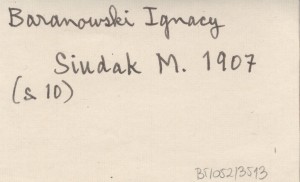 Baranowski Ignacy
Siudak M. 1907
(s 10)
BJ/052/3513